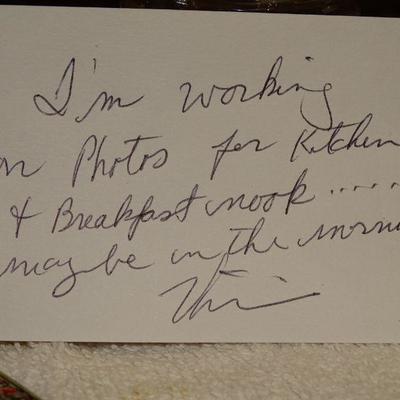 I'm working
on Photos for Kitchen
& Breakfast nook......
maybe in the morni